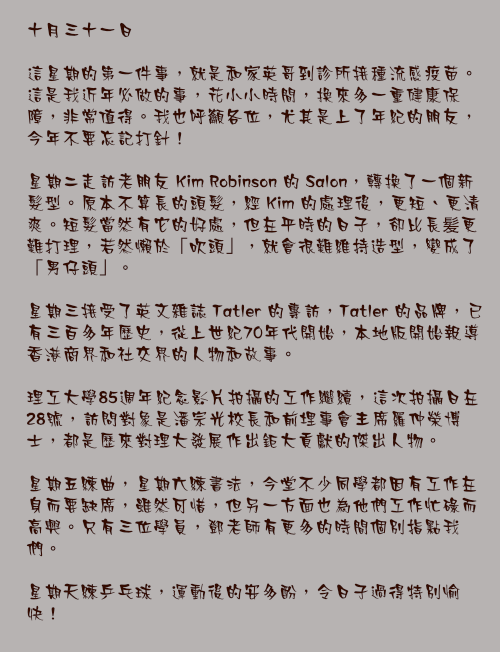 十月三十一日
這星期的第一件事，就是和家英哥到診所接種流感疫苗。
這是我近年必做的事，花小小時間，換來多一重健康保
障，非常值得。我也呼籲各位，尤其是上了年紀的朋友，
今年不要忘記打針！
星期二走訪老朋友 Kim Robinson 的 Salon，轉換了一個新
髮型。原本不算長的頭髮，經 Kim 的處理後，更短、更清
爽。短髮當然有它的好處，但在平時的日子，卻比長髮更
難打理，若然懶於「吹頭」，就會很難維持造型，變成了
「男仔頭」。
星期三接受了英文雜誌 Tatler 的專訪，Tatler 的品牌，已
有三百多年歷史，從上世紀70年代開始，本地版開始報導
香港商界和社交界的人物和故事。
理工大學85週年紀念影片拍攝的工作繼續，這次拍攝日在
28號，訪問對象是潘宗光校長和前理事會主席羅仲榮博
士，都是歷來對理大發展作出鉅大貢獻的傑出人物。
星期五練曲，星期六練書法，今堂不少同學都因有工作在
身而要缺席，雖然可惜，但另一方面也為他們工作忙碌而
高興。只有三位學員，鄭老師有更多的時間個別指點我
們。
星期天練乒乓球，運動後的安多酚，令日子過得特別愉
快！